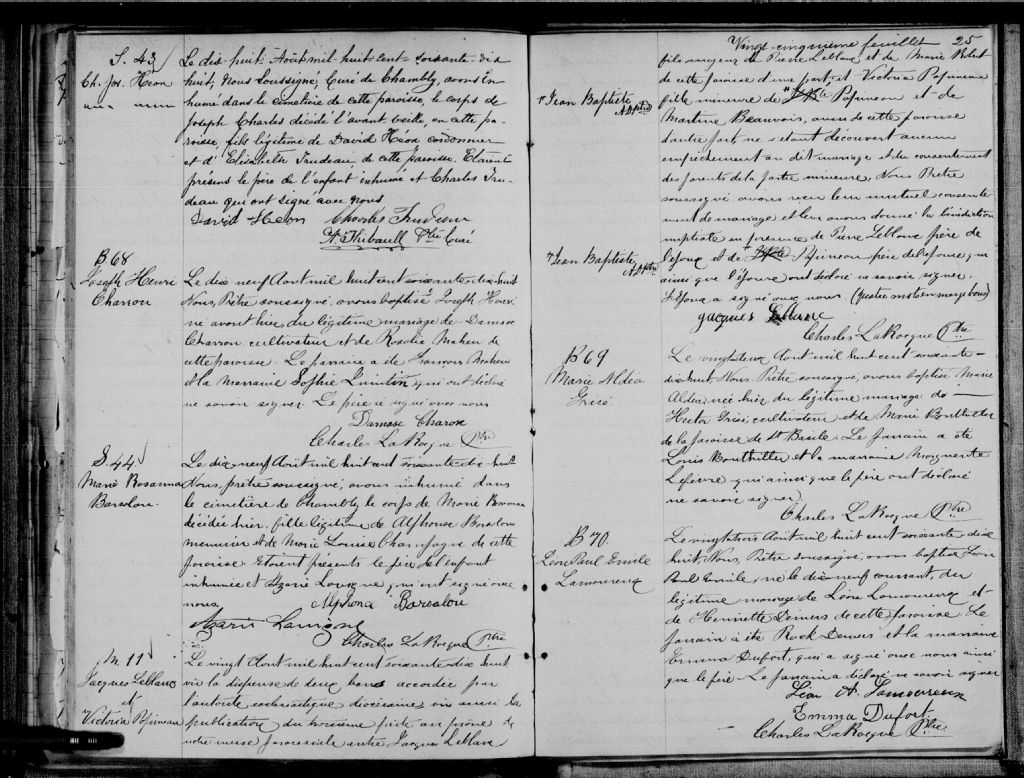 S. 43
Ch. Jos. Héon
Le dix huit Août mil huit cent soixante dix
huit, Nous Soussigné, Curé de Chambly, avons in
humé dans le cimetière de cette paroisse, le corps de
Joseph Charles décédé l'avant veille, en cette pa-
roisse, fils légitime de David Héon cordonnier
et d'Elisabeth Trudeau, de cette paroisse. Etaient
présens le père de l'enfant inhumé et Charles Tru-
deau qui ont signé avec nous
David Heon Charles Trudeau
Thibault Ptre Curé
B 68
Joseph Henri
Charron
Le dix neuf Aout mil huit cent soixante-dix huit
Nous, Prêtre soussigné, avons baptisé Joseph Henri
né avant hier, du légitime mariage de Damase
Charron cultivateur et de Rosalie Maheu de
cette paroisse. Le parrain a été François Maheu
et la marraine Sophie Quintin qui ont déclaré
ne savoir signer. Le père a signé avec nous
Damase Charon
Charles LaRocque Ptre
S. 44
Marie Rosanna
Barsalou.
Le dix neuf Août mil huit cent soixante dix huit
Nous, prêtre soussigné, avons inhumé dans
le cimetière de Chambly, le corps de Marie Rosanna
décédée hier, fille légitime de Alphonse Barsalou
menuisier et de Marie Louise Champagne de cette
paroisse. Etoient présents le père de l'enfant
inhumée et Azarie qui ont signé avec
nous.
Alphonse Barsalou
Azarie
Charles LaRocque Ptre
M. 11
Jacques Leblanc
et
Victoria Papineau
Le vingt Aout mil huit cent soixante dix huit
vu la dispense de deux bans accordée par
l'autorité ecclésiastique diocésaine, vu aussi la
publication du troisième faite au prône de
notre messe paroissiale entre Jacques Leblanc
Vingt-cinquième feuillet 25
fils majeur de Pierre Leblanc et de Marie
de cette paroisse d'une part, et Victoria Papineau
+ Jean Baptiste
fille mineure de + Papineau et de
Martine Beauvais, aussi de cette paroisse
d'autre part, ne s'étant découvert aucun
empêchement au dit mariage et du consentement
des parents de la partie mineure, Nous Prêtre
soussigné avons reçu leur mutuel consente
ment de mariage et leur avons donné la bénédiction
nuptiale en présence de Pierre Leblanc père de
+ Jean Baptiste
l'époux et de + Papineau père de l'épouse, qui
ainsi que l'épouse ont déclaré ne savoir signer.
L'époux a signé avec nous. (Quatre mots en marge bons)
Jacques Leblanc
Charles LaRocque Ptre
B 69
Marie Aldéa
Grisé
Le vingt deux Aout mil huit cent soixante-
dix huit, Nous Prêtre soussigné, avons baptisé Marie
Aldéa, née hier du légitime mariage de
Hector Grisé, cultivateur et de Marie Bouthiller
de la paroisse de St Basile. Le parrain a été
Louis Bouthiller et la marraine Marguerite
Lefevre qui ainsi que le père ont déclaré
ne savoir signer
Charles LaRocque Ptre
B 70.
Léon Paul Emile
Lamoureux
Le vingt trois Août mil huit cent soixante dix
huit, Nous, Prêtre soussigné, avons baptisé Léon
Paul Emile, né le dix neuf courant, du
légitime mariage de Léon Lamoureux et
de Henriette Demers de cette paroisse. Le
parrain a été Rock Demers et la marraine
Emma Dufort, qui a signé avec nous ainsi
que le père. Le parrain a déclaré ne savoir signer
Léon A. Lamoureux
Emma Dufort
Charles LaRocque Ptre